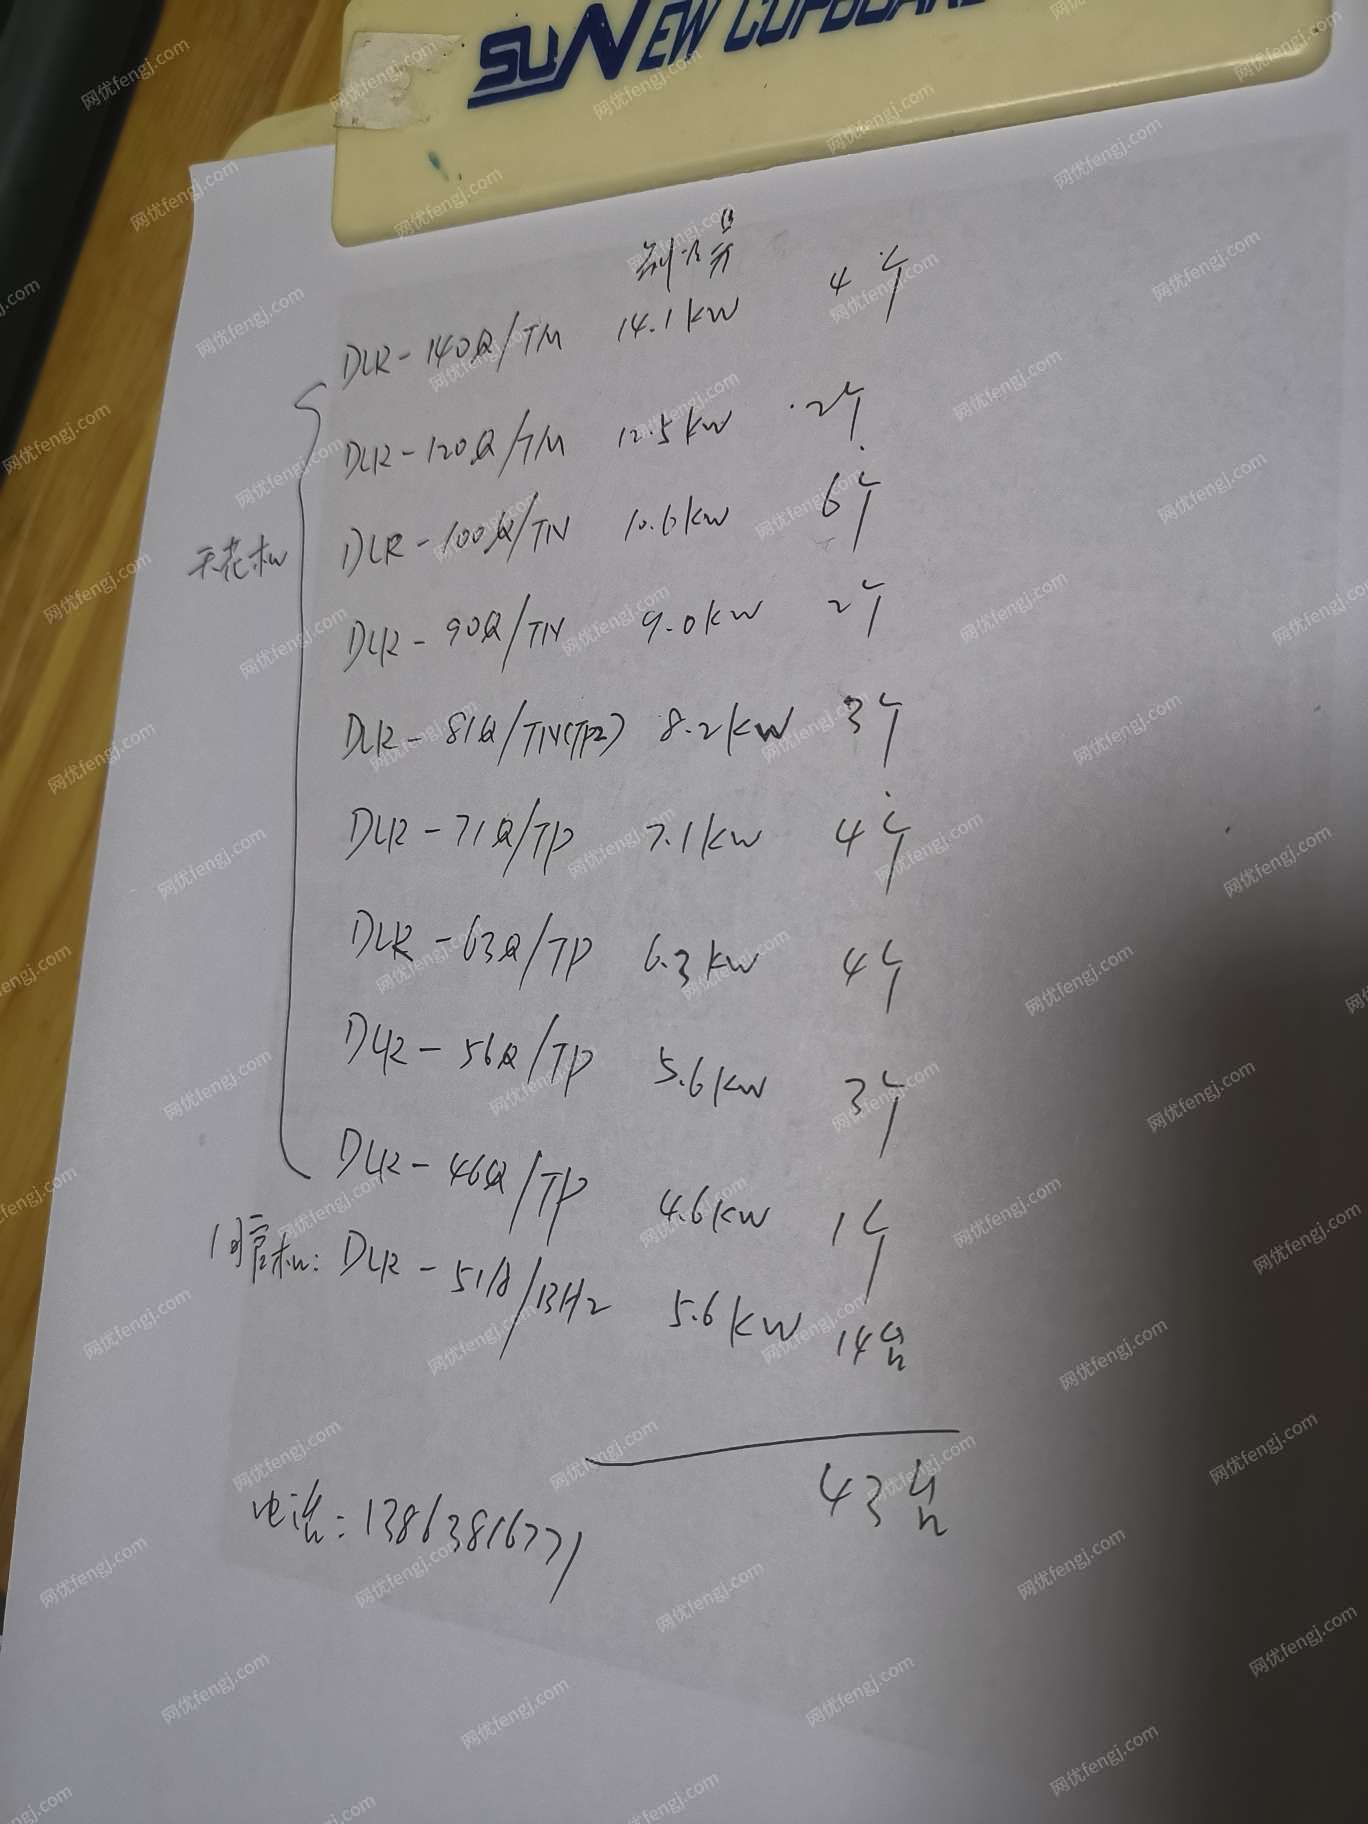 SUNEW CUPBOARD
制冷量
DLR-140Q/TM 14.1kw 4个
DLR-120Q/TM 12.5kw 2个
DLR-100Q/TN 10.6kw 6个
天花机
DLR-90Q/TN 9.0kw 2个
DLR-81Q/TN(TP2) 8.2kw 3个
DLR-71Q/TP 7.1kw 4个
DLR-63Q/TP 6.3kw 4个
DLR-56Q/TP 5.6kw 3个
DLR-46Q/TP 4.6kw 1个
机: DLR-51 5.6kw 14台
43台
电话:13863816771
网优fengj.com